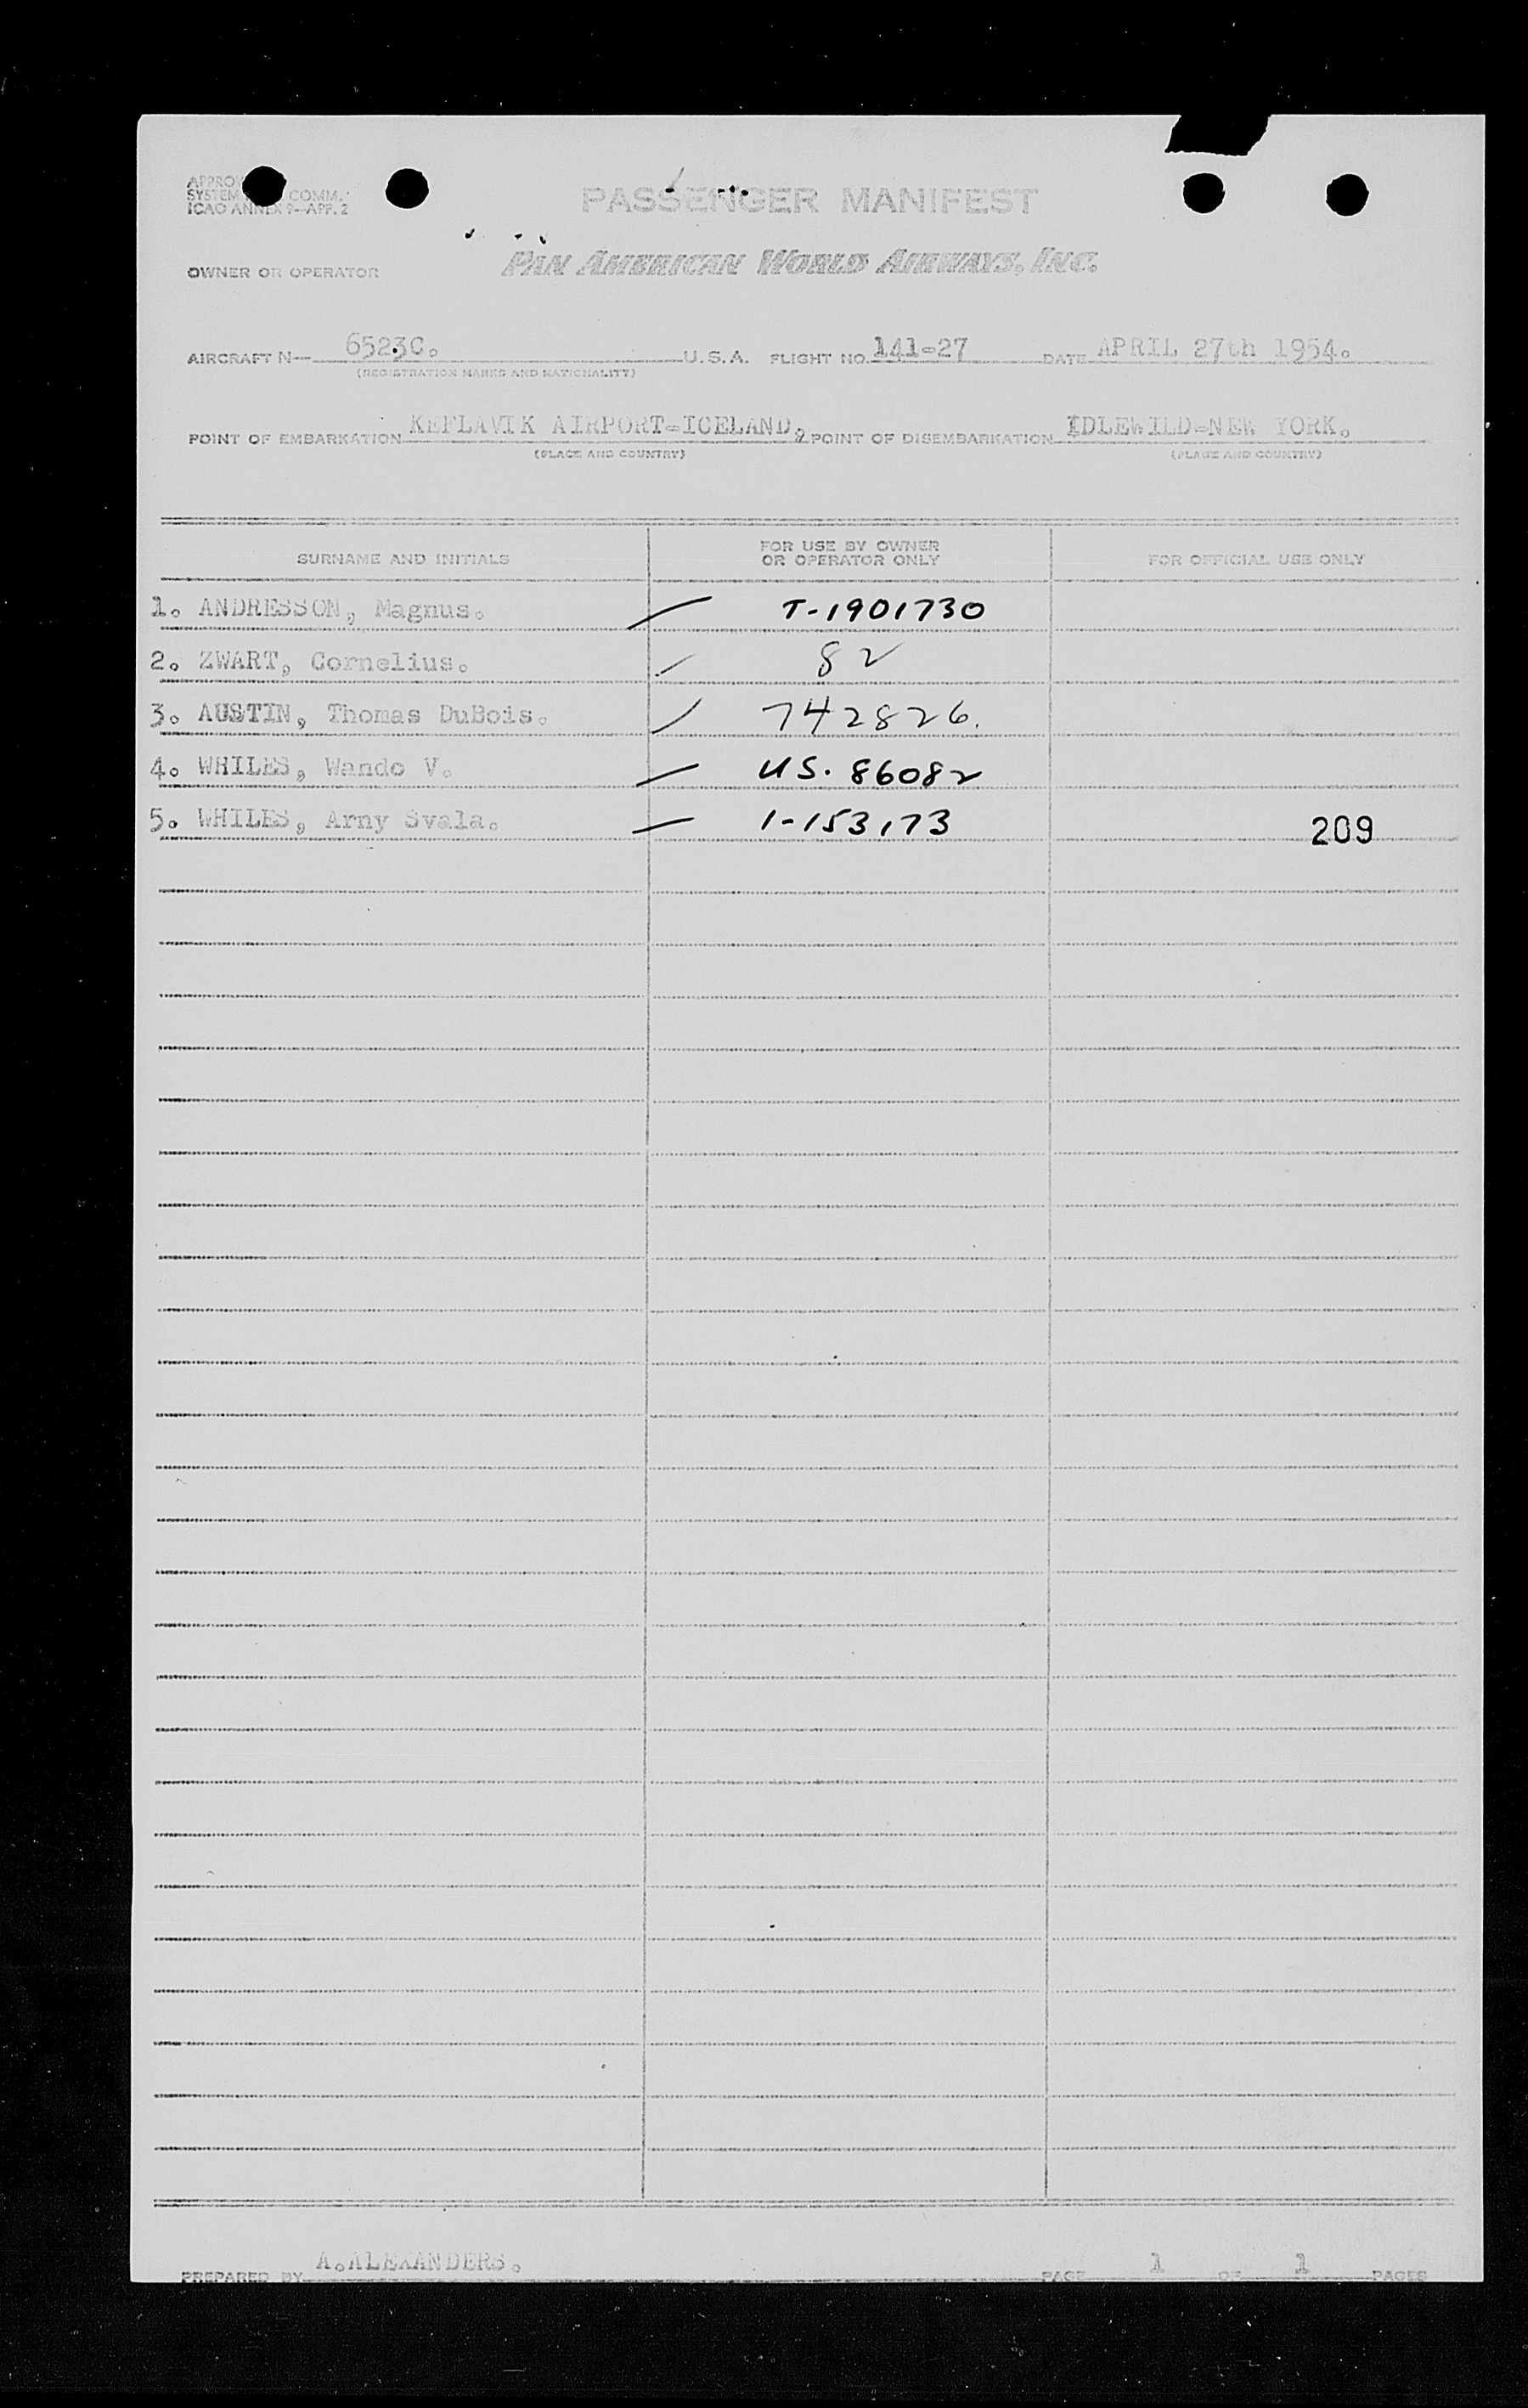 PASSENGER MANIFEST
ICAO ANNEX 9—APP. 2
OWNER OR OPERATOR PAN AMERICAN WORLD AIRWAYS, INC.
AIRCRAFT N— 6523C. U.S.A. FLIGHT NO. 141-27 DATE APRIL 27th 1954.
(REGISTRATION MARKS AND NATIONALITY)
POINT OF EMBARKATION KEFLAVIK AIRPORT-ICELAND, POINT OF DISEMBARKATION IDLEWILD-NEW YORK.
(PLACE AND COUNTRY) (PLACE AND COUNTRY)
SURNAME AND INITIALS FOR USE BY OWNER OR OPERATOR ONLY FOR OFFICIAL USE ONLY
1. ANDRESSON, Magnus. T-1901730
2. ZWART, Cornelius. 82
3. AUSTIN, Thomas DuBois. 742826.
4. WHILES, Wando V. US. 86082
5. WHILES, Arny Svala. 1-153173 209
PREPARED BY A.ALEXANDERS. PAGE 1 OF 1 PAGES